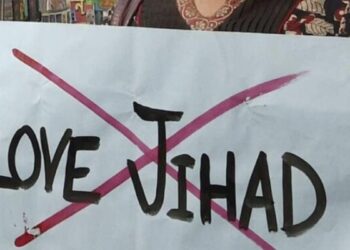 LOVE JIHAD